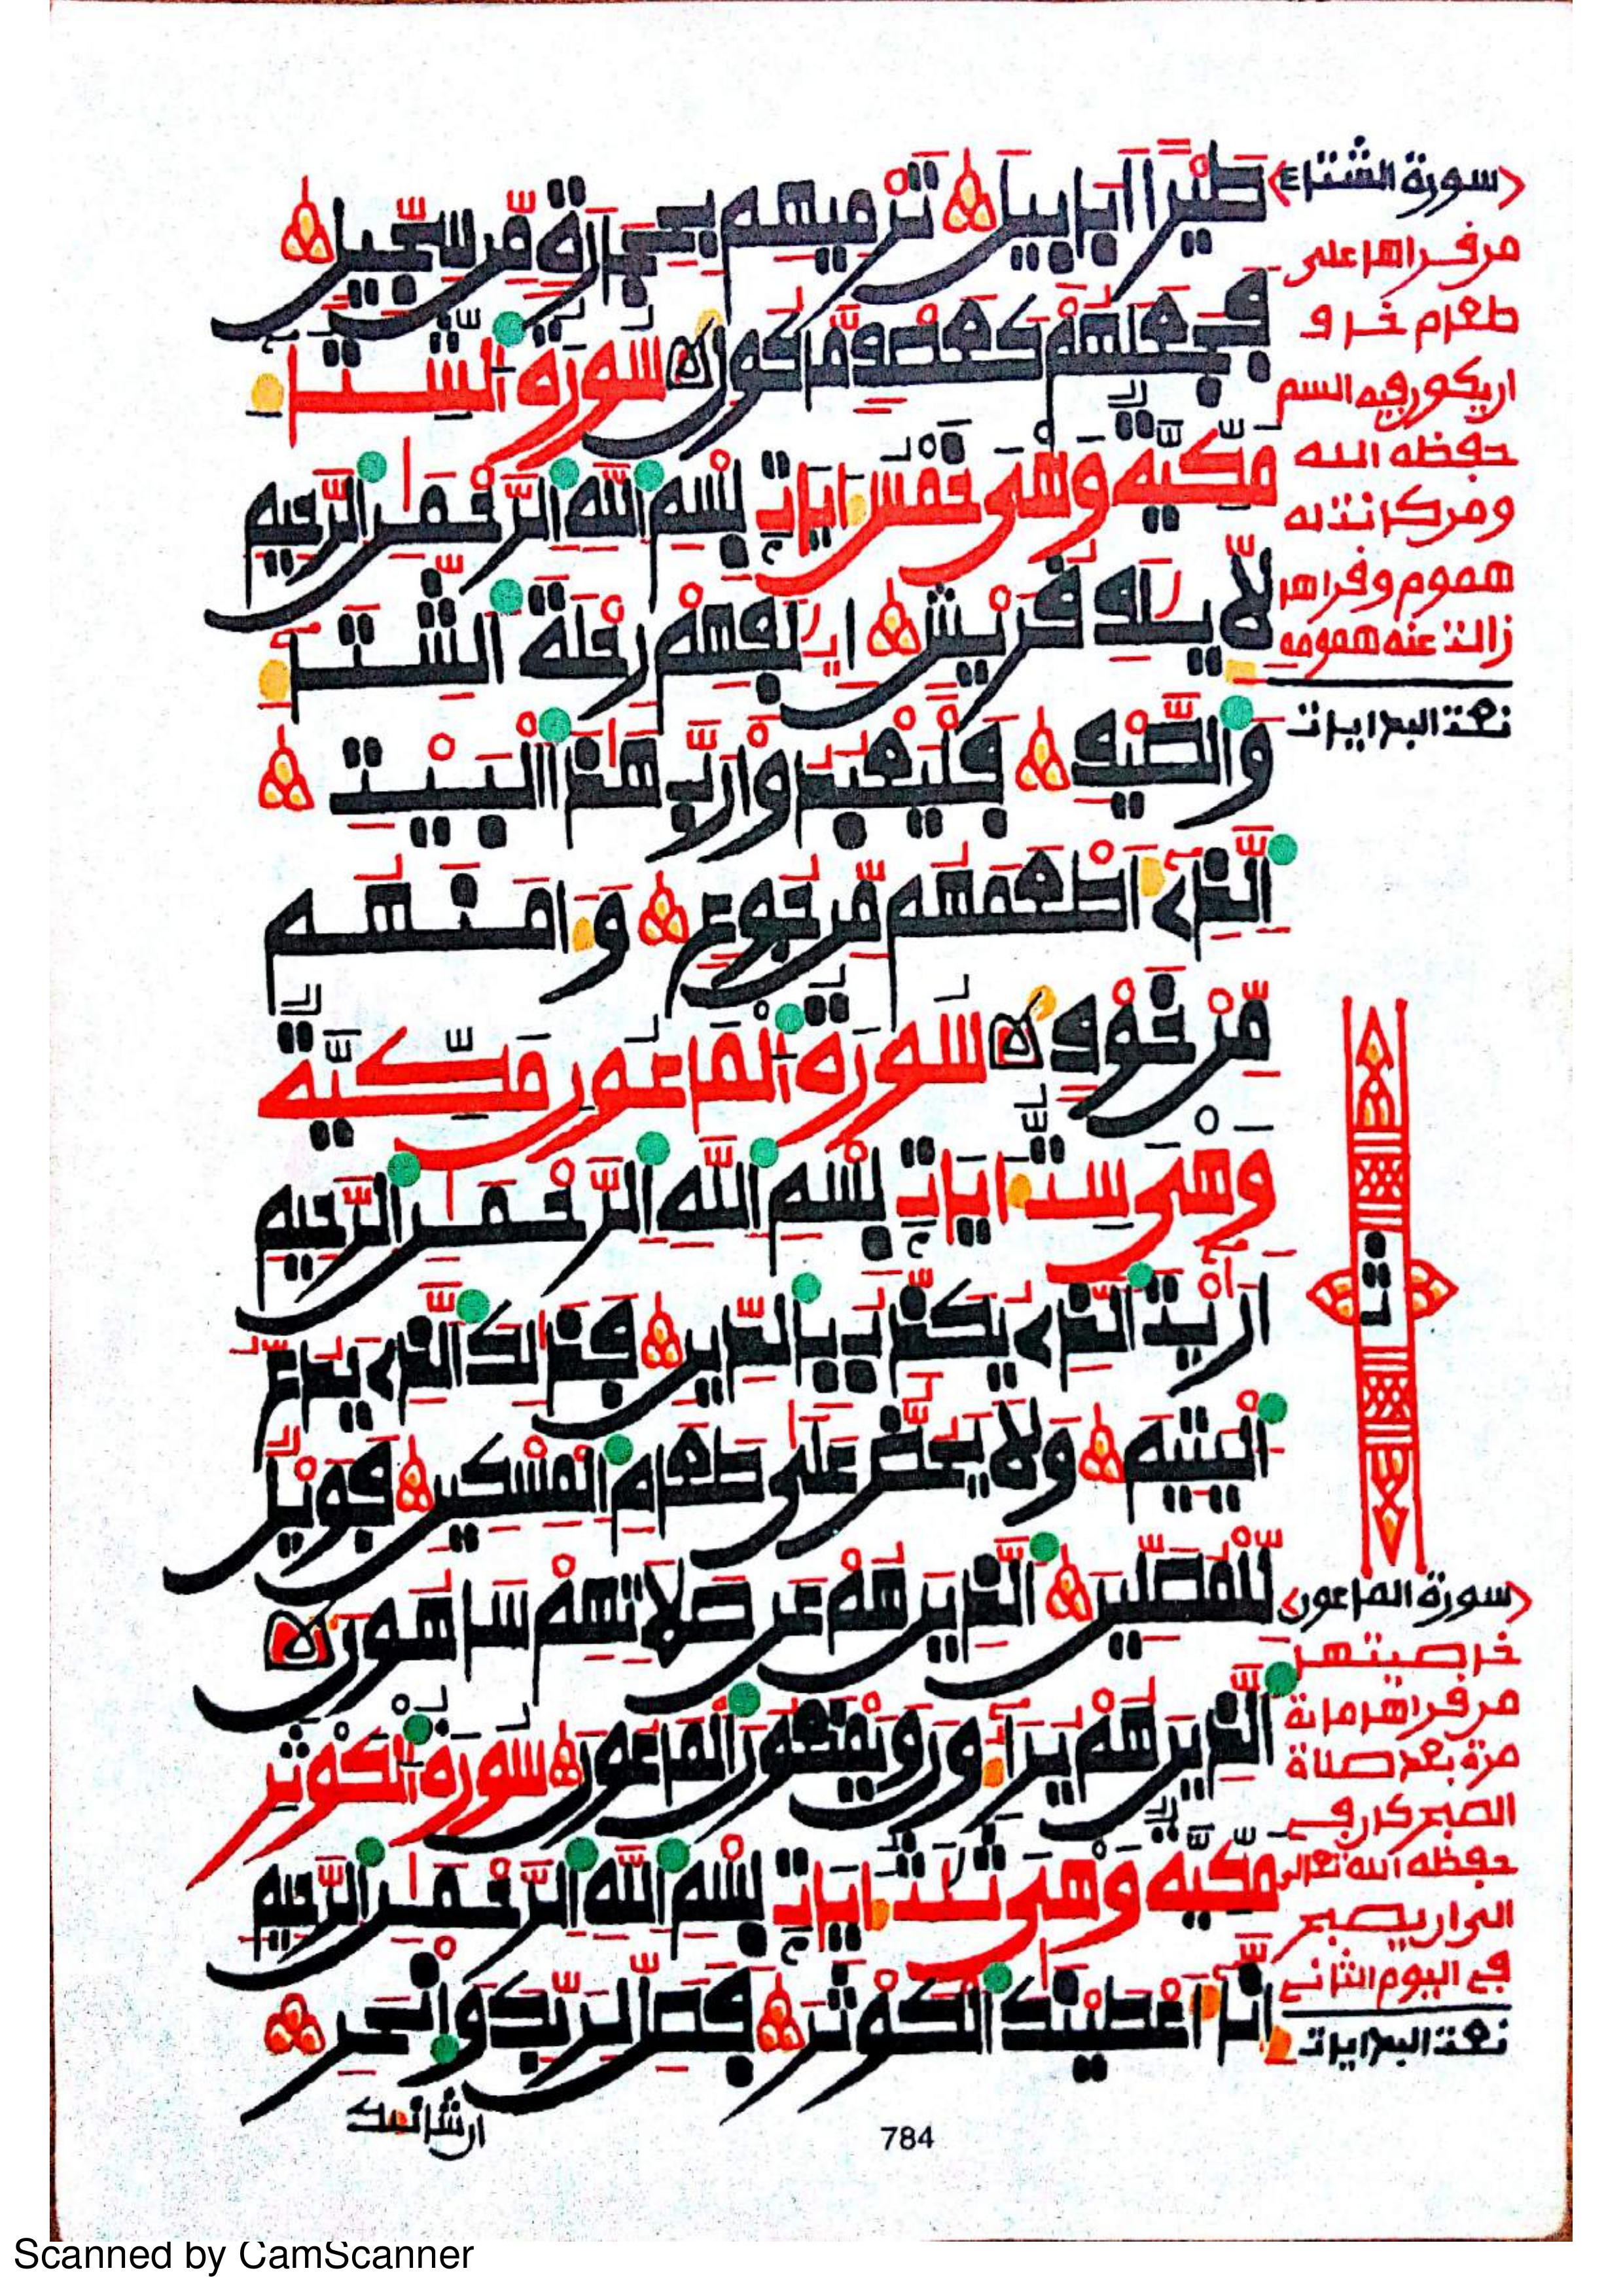 طَيْراً اَبَابِيلَ تَرْمِيهِم بِحِجَارَةٖ مِّن سِجِّيلٖ
فَجَعَلَهُمْ كَعَصْفٖ مَّاكُولٖ سُورَةُ الشِّتَاءِ
مَكِّيَّةٌ وَهْيَ خَمْسُ ءَايَاتٖ بِسْمِ اللَّهِ الرَّحْمَٰنِ الرَّحِيمِ
لِإِيلَٰفِ قُرَيْشٍ اِۦلَٰفِهِمْ رِحْلَةَ الشِّتَآءِ
وَالصَّيْفِ فَلْيَعْبُدُواْ رَبَّ هَٰذَا الْبَيْتِ
الَّذِےٓ أَطْعَمَهُم مِّن جُوعٖ وَءَامَنَهُم
مِّنْ خَوْفٖ سُورَةُ الْمَاعُونِ مَكِّيَّةٌ
وَهْيَ سِتُّ ءَايَاتٖ بِسْمِ اللَّهِ الرَّحْمَٰنِ الرَّحِيمِ
أَرَٰٓيْتَ الَّذِے يُكَذِّبُ بِالدِّينِ فَذَٰلِكَ الَّذِے يَدُعُّ
الْيَتِيمَ وَلَا يَحُضُّ عَلَىٰ طَعَامِ الْمِسْكِينِ فَوَيْلٌ
لِّلْمُصَلِّينَ الَّذِينَ هُمْ عَن صَلَاتِهِمْ سَاهُونَ
الَّذِينَ هُمْ يُرَآءُونَ وَيَمْنَعُونَ الْمَاعُونَ سُورَةُ الْكَوْثَرِ
مَكِّيَّةٌ وَهْيَ ثَلَٰثُ ءَايَاتٖ بِسْمِ اللَّهِ الرَّحْمَٰنِ الرَّحِيمِ
إِنَّآ أَعْطَيْنَٰكَ الْكَوْثَرَ فَصَلِّ لِرَبِّكَ وَانْحَرِ
ان شانئك
784
سورة الشتاء
من قراها على
طعام خاف
ان يكون فيه السم
حفظه الله
ومن كانت له
هموم وقراها
زالت عنه همومه
نعت البدايات
ت
سورة الماعون
خاصيتها
من قراها مائة
مرة بعد صلاة
الصبح كان في
حفظه الله تعالى
الى ان يصبح
في اليوم الثاني
نعت البدايات
Scanned by CamScanner